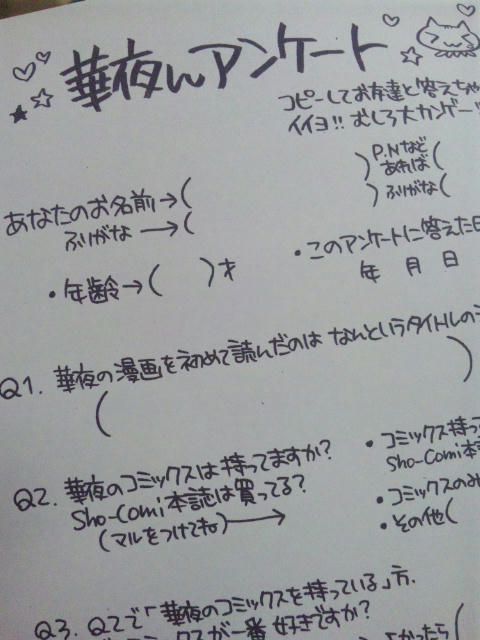 華夜んアンケート
コピーしてお友達と答えちゃ
イイヨ!! むしろ大カンゲー!!
あなたのお名前→(
)P.Nなど あれば(
ふりがな→(
)ふりがな(
・年齢→( )才
・このアンケートに答えた日
年 月 日
Q1. 華夜の漫画を初めて読んだのは なんというタイトルの
( )
Q2. 華夜のコミックスは持ってますか?
Sho-Comi本誌は買ってる?
(マルをつけてね)→
・コミックス持っ
Sho-Comi本
・コミックスのみ
・その他(
Q3. Q2で「華夜のコミックスを持っている」方.
コミックスが一番好きですか?
かったら(